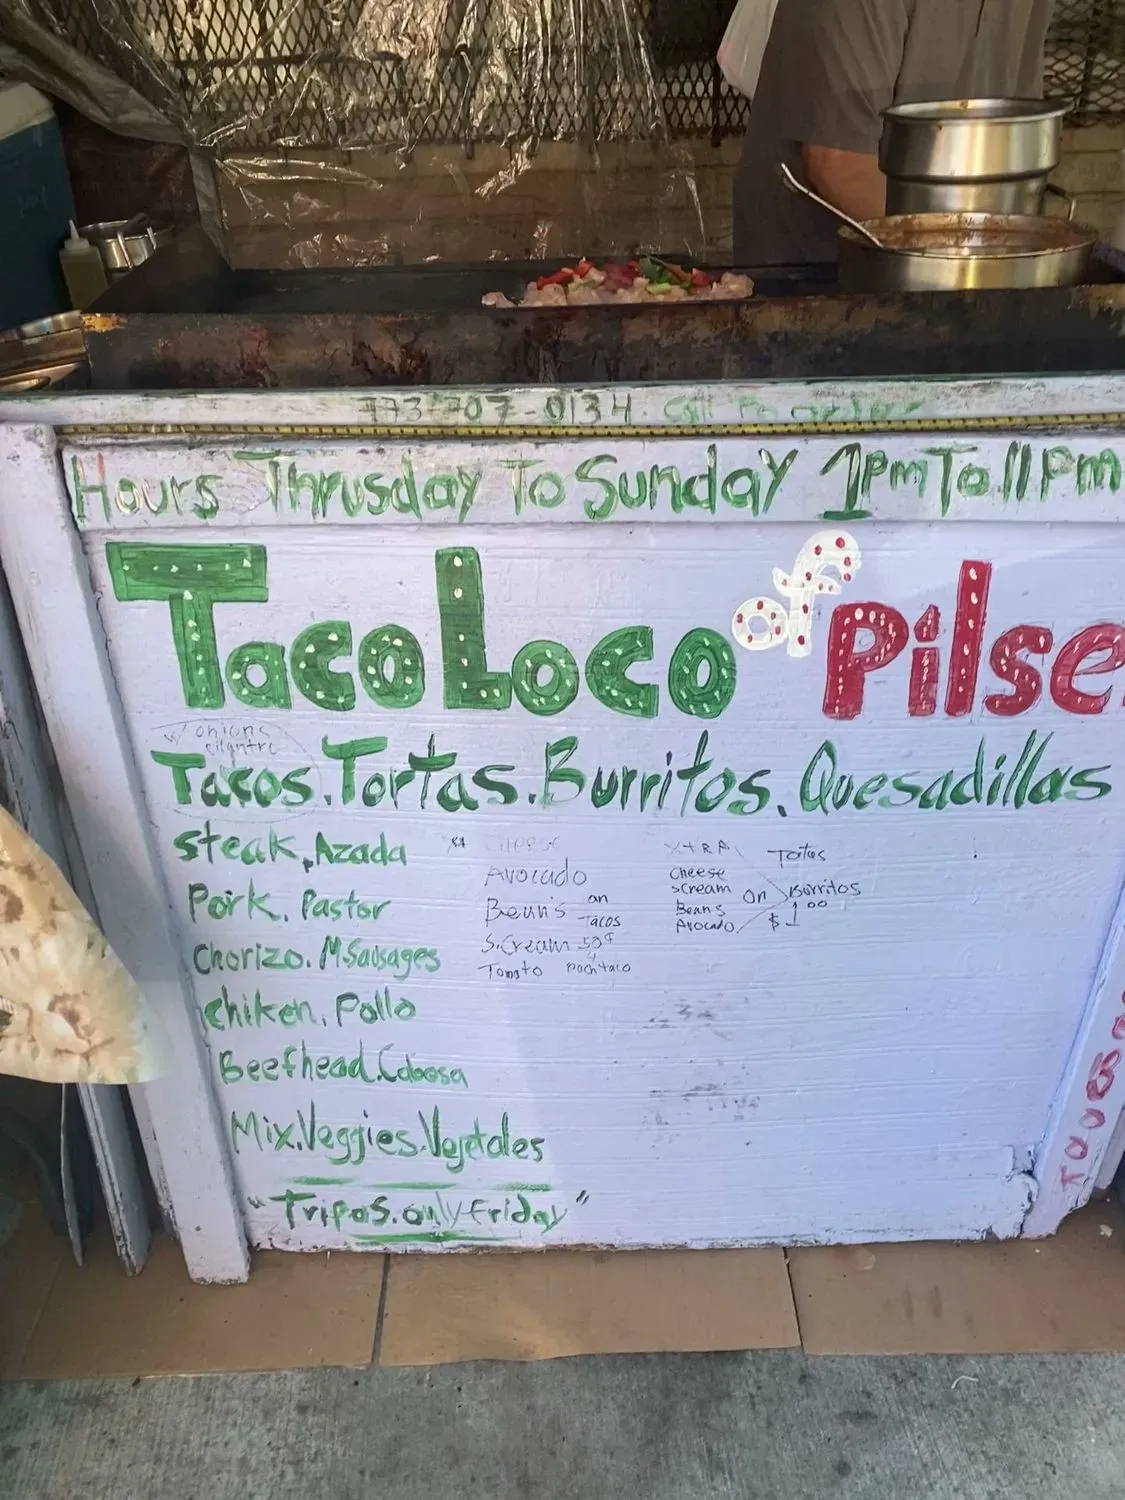 773-707-0134. Call To
Hours Thrusday To Sunday 1Pm To 11 Pm
Taco Loco of Pilse
W onions
cilantro
Tacos. Tortas. Burritos. Quesadillas
Steak, Azada
Pork. Pastor
Chorizo. M. Sausages
Chiken, Pollo
Beefhead. Cabesa
Mix. Veggies. Vegetales
"Tripas. only Friday"
Cheese
Avocado
Bean's on Tacos
S. Cream 50¢
Tomato Each taco
XTRA
Cheese
S cream
Beans
Avocado
On
Tortas
Burritos
$1.00